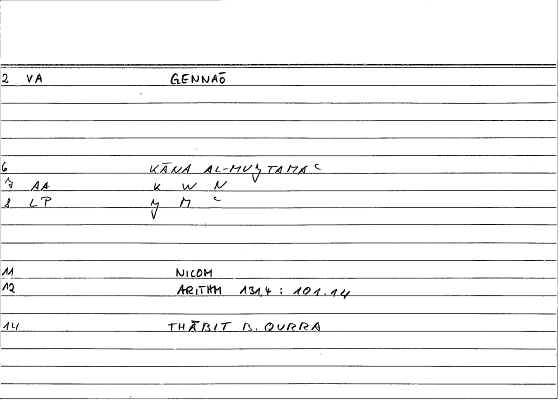 2 VA GENNAŌ
6 KĀNA AL-MUǦTAMAʿ
7 AA K W N
8 LP Ǧ M ʿ
11 NICOM
12 ARITHM 131,4 : 101.14
14 THĀBIT B. QURRA